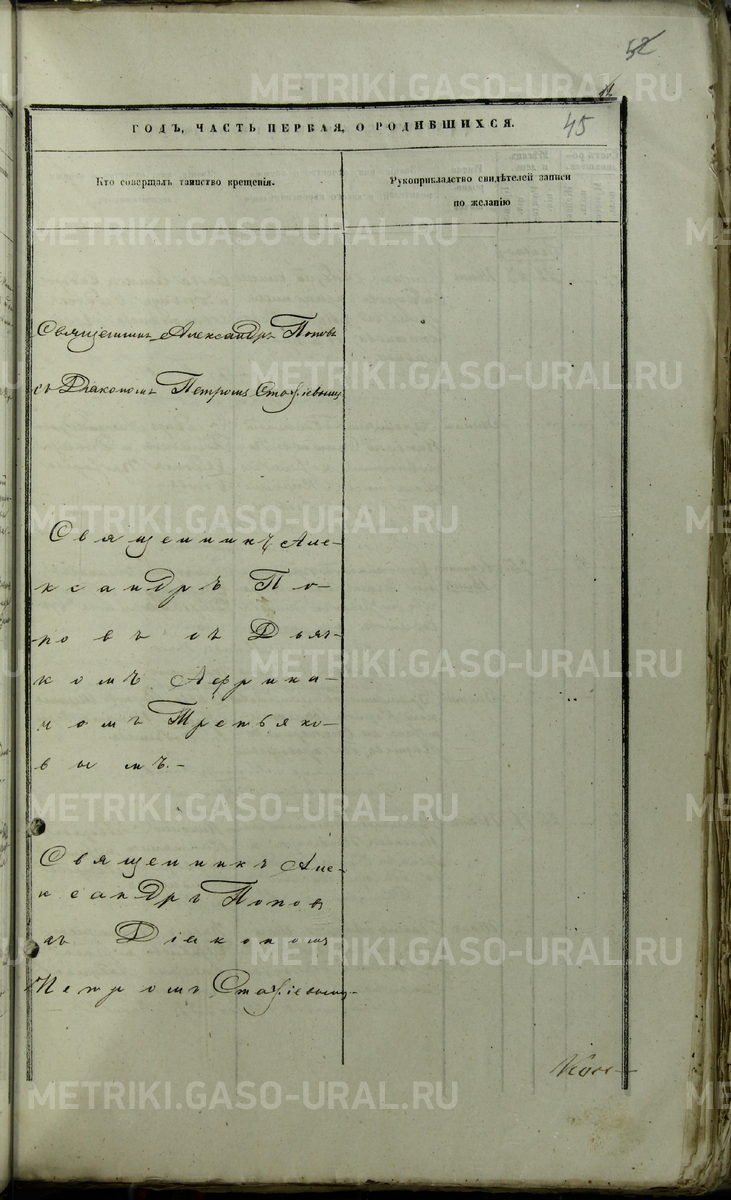 52
METRIKI.GASO-URAL.RU
ГОДЪ, ЧАСТЬ ПЕРВАЯ, О РОДИВШИХСЯ.
45
Кто совершалъ таинство крещенія.
Рукоприкладство свидѣтелей записи
по желанію
Священникъ Александръ Поповъ
съ Діакономъ Петромъ Стафіевымъ
Священникъ Але-
ксандръ По-
повъ съ Дьяч-
комъ Африка-
номъ Третьяко-
вымъ.-
Священникъ Але-
ксандръ Поповъ
съ Діакономъ
Петромъ Стафіевымъ